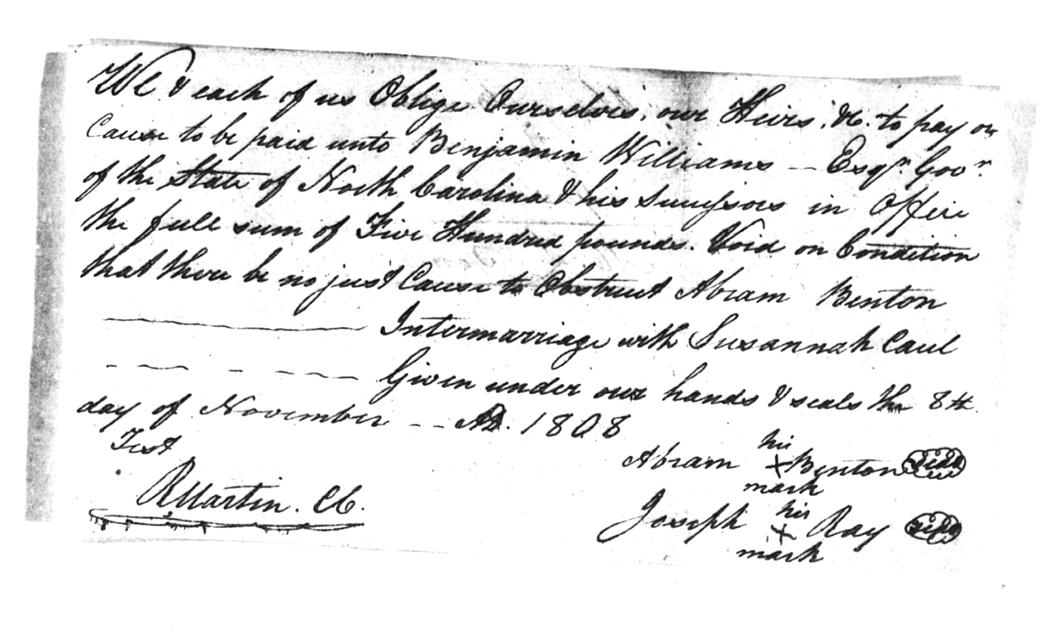 We & each of us Oblige Ourselves, our Heirs, &c. to pay or
Cause to be paid unto Benjamin Williams -- Esqr. Govr.
of the State of North Carolina & his Successors in Office
the full sum of Five Hundred pounds. Void on Condition
that there be no just Cause to Obstruct Abram Benton
Intermarriage with Susannah Caul
Given under our hands & seals the 8th
day of November -- AD. 1808
Test
Abram his X mark Benton seal
RMartin. CC.
Joseph his X mark Ray seal